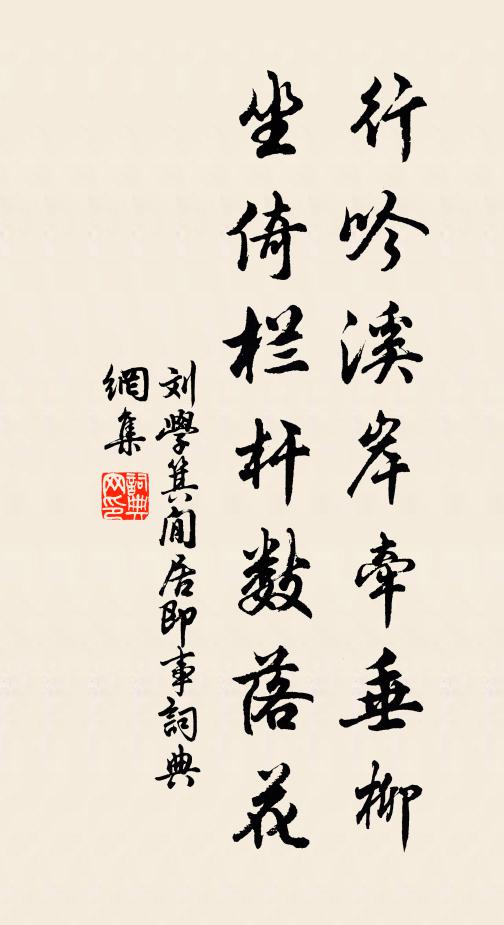 行吟溪岸牵垂柳
坐倚栏杆数落花
刘學箕闲居即事詞典
網集
詞典网印